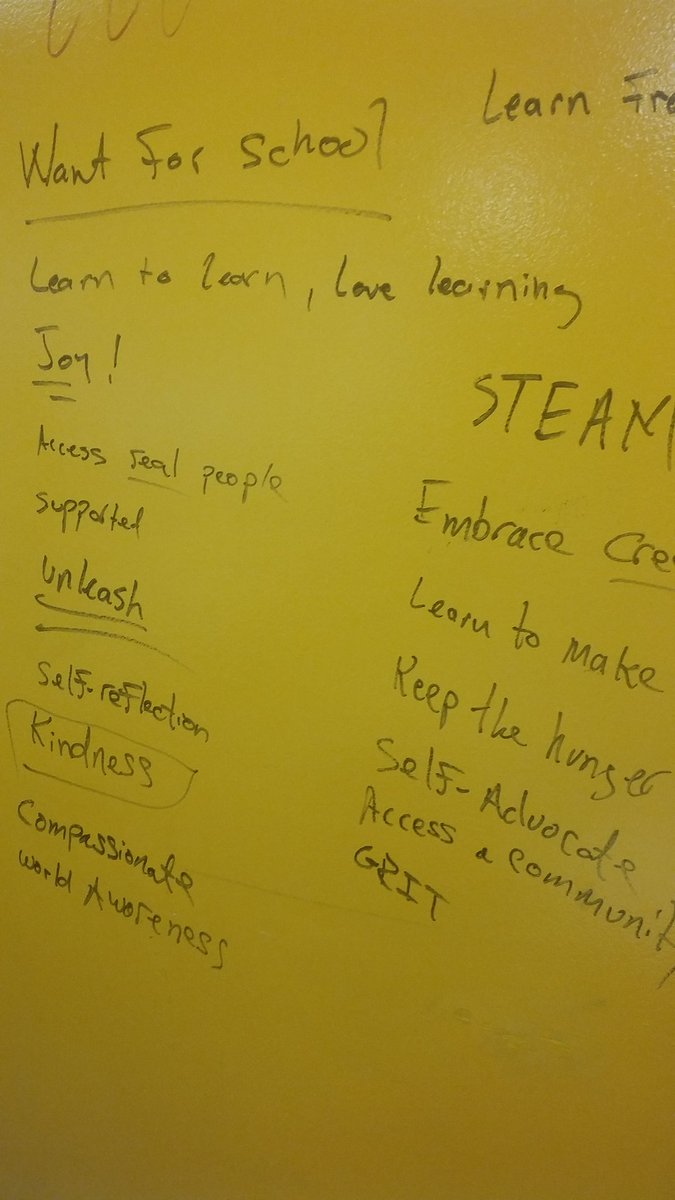 Want For School
Learn to learn, love learning
Joy!
Access real people
Supported
Unleash
Self-reflection
Kindness
Compassionate
World Awareness
Learn Fre
STEAM
Embrace Cre
Learn to make
Keep the hunger
Self-Advocate
Access a community
GRIT